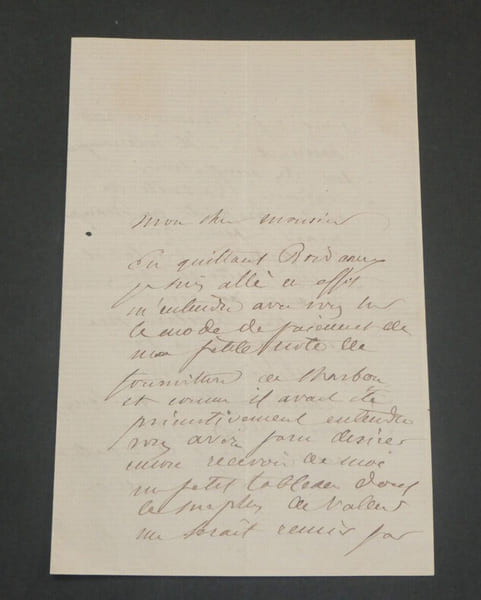 mon cher monsieur
En quittant Bordeaux
je suis allé en effet
m'entendre avec vous sur
le mode de paiement de
ma petite note de
fourniture de charbon
et comme il avait été
primitivement entendu
vous avez paru desirer
mieux recevoir de moi
un petit tableau dont
le surplus de valeur
me serait remis par